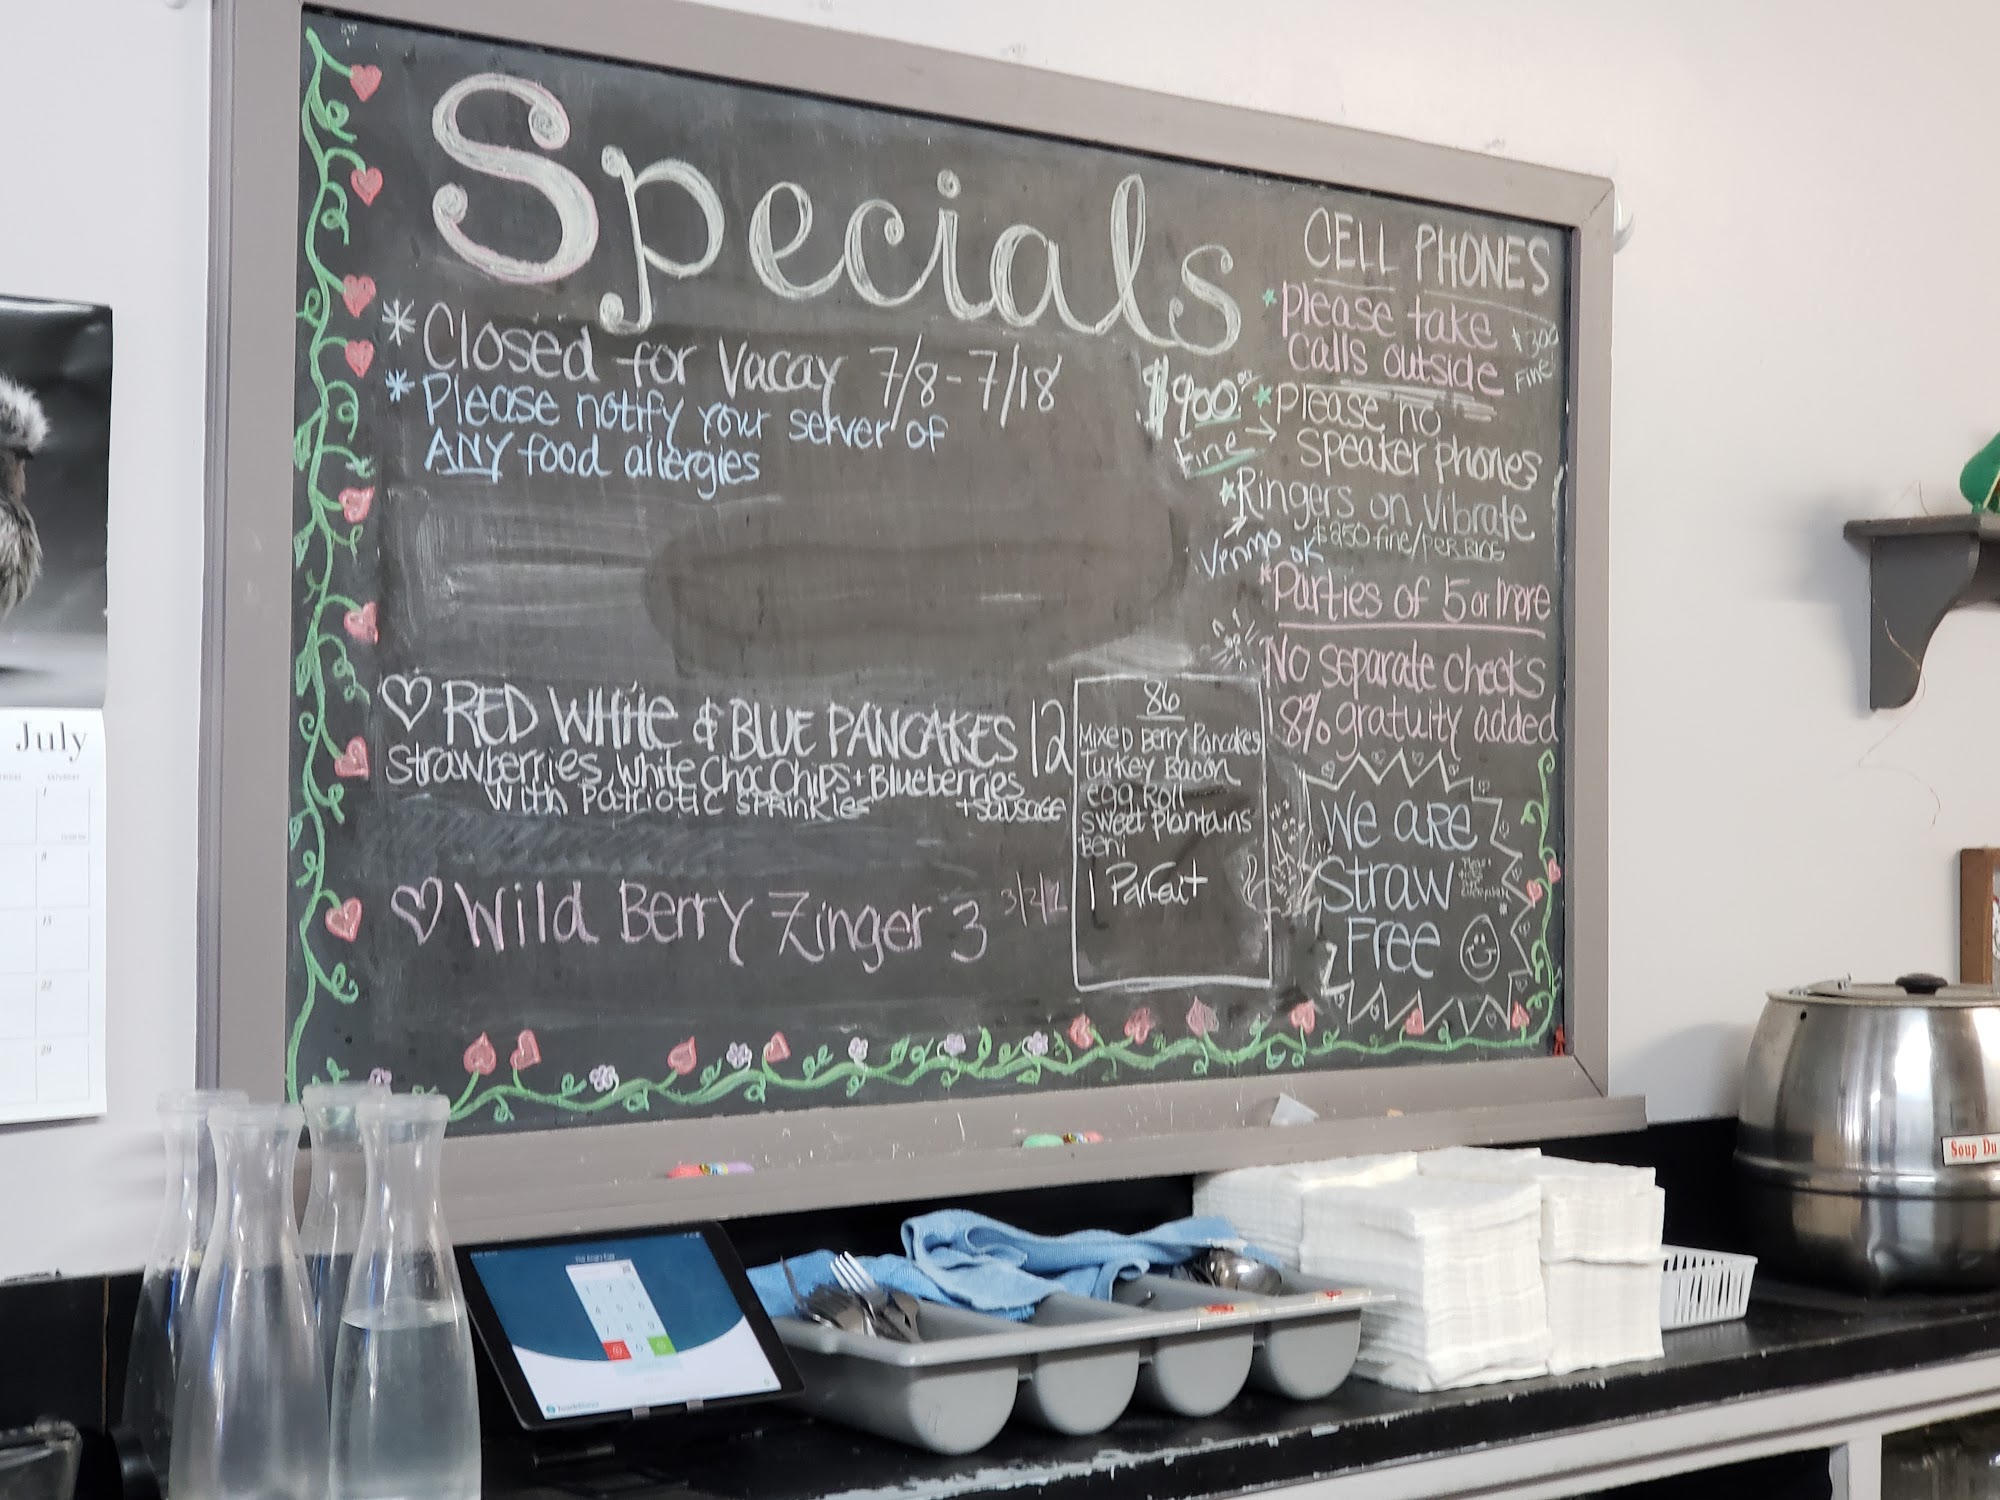 Specials
* Closed for Vacay 7/8-7/18
* Please notify your server of
ANY food allergies
♡ RED WHITE & BLUE PANCAKES 12
Strawberries, White Choc Chips + Blueberries
with Patriotic sprinkles + sausage
♡ Wild Berry Zinger 3
86
Mixed Berry Pancakes
Turkey Bacon
egg Roll
sweet plantains
Beni
1 Parfait
CELL PHONES
* please take
calls outside
$300
Fine!
$900.00
Fine →
* please no
speaker phones
* Ringers on Vibrate
$250 fine/per RING
Venmo ok
* Parties of 5 or more
No separate checks
18% gratuity added
We are
Straw
Free
July
SATURDAY
1
15
22
29
Soup Du